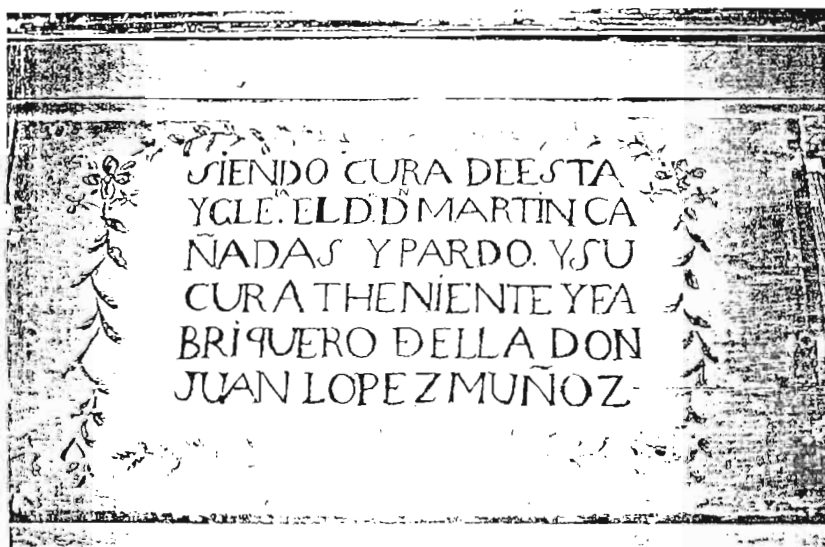 SIENDO CURA DEESTA
YGLE.ᴵᴬ EL D.ᴿ D.ᴺ MARTIN CA
ÑADAS Y PARDO. YSU
CURA THENIENTE YFA
BRIQUERO DELLA DON
JUAN LOPEZ MUÑOZ